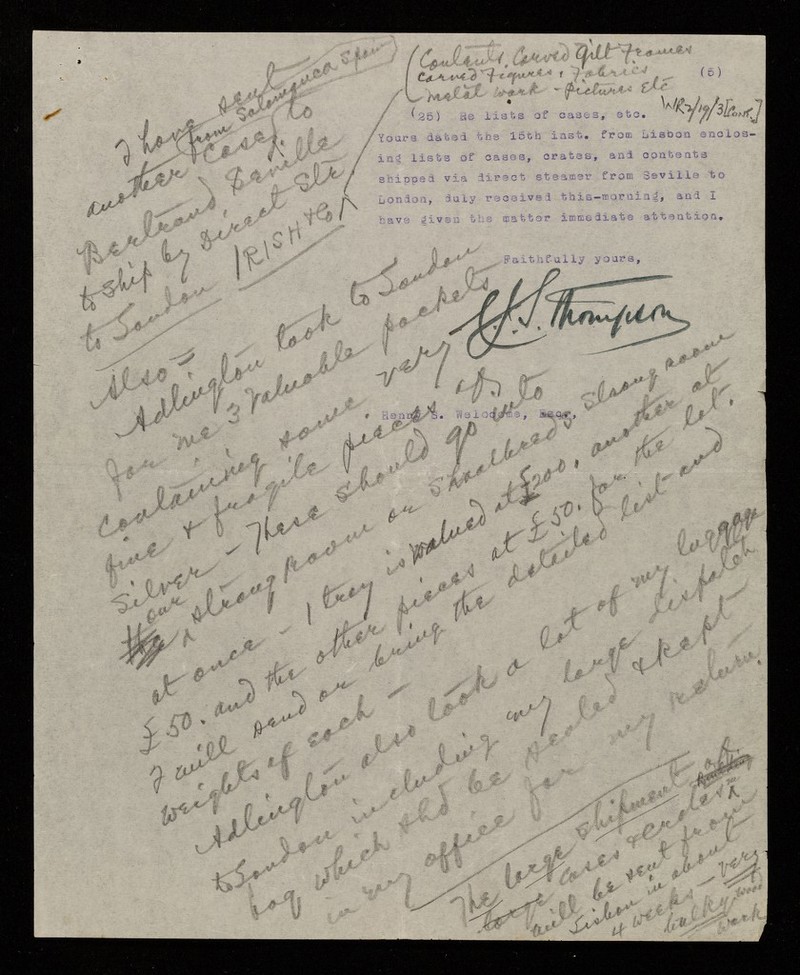 (Contents, Carved Gilt Frames
Carved Figures, Fabrics
metal work - Pictures Etc
(5)
WR2/19/3 [cont.]
(25) Re lists of cases, etc.
Yours dated the 15th inst. from Lisbon enclos-
ing lists of cases, crates, and contents
shipped via direct steamer from Seville to
London, duly received this-morning, and I
have given the matter immediate attention.
Faithfully yours,
C.J.S. Thompson
Henry S. Wellcome, Esq.,
I have sent
from Salamanca Spain
another case to
Bertrand Seville
to ship by Direct Str
to London IRISH & Co
Also =
Adlington took to London
for me 3 valuable packets
containing some very
fine & fragile pieces of
Silver - These should go into
our strong room or Shoolbreds strong room
at once - 1 tray is valued at £200. another at
£50. and the other pieces at £50. for the lot.
I will send or bring the detailed list and
weights of each -
Adlington also took a lot of my luggage
to London including my large dispatch
bag which shd be sealed & kept
in my office for my return.
The large shipment of
large cases & crates
will be sent from
Lisbon in about
4 weeks - very
bulky wood
work